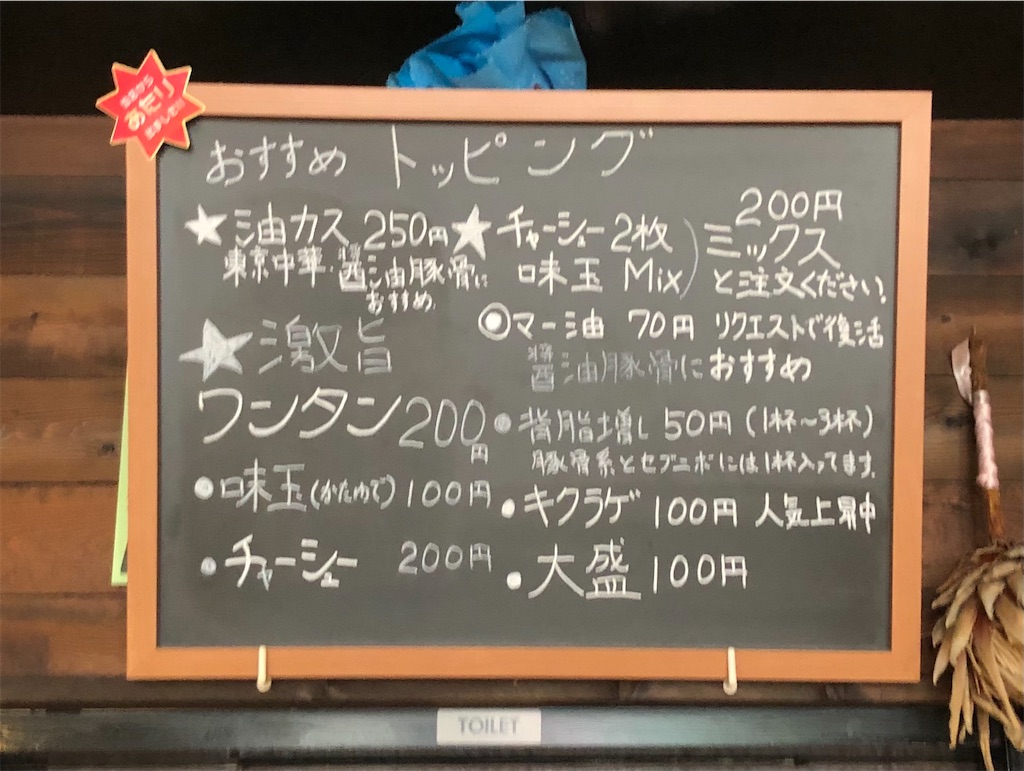 あたり
おすすめ トッピング
★油カス 250円
東京中華・醤油豚骨に
おすすめ
★激旨
ワンタン200円
●味玉(かたゆで)100円
●チャーシュー 200円
★チャーシュー2枚
味玉 Mix)
200円
ミックス
と注文ください。
◎マー油 70円 リクエストで復活
醤油豚骨におすすめ
●背脂増し 50円(1杯〜3杯)
豚骨系とセブニボには1杯入ってます。
●キクラゲ 100円 人気上昇中
●大盛 100円
TOILET